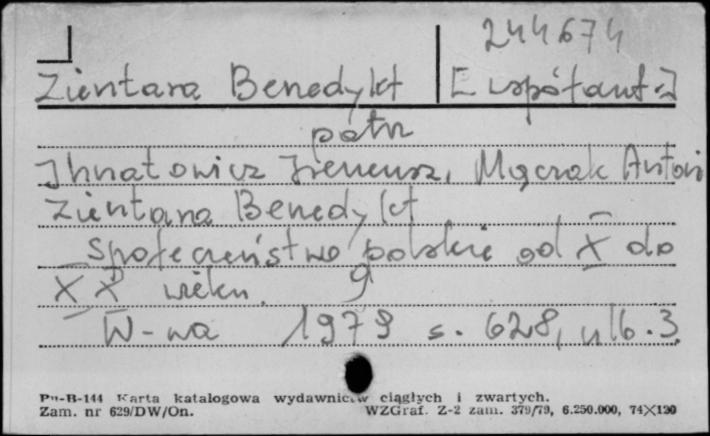 244674
Zientara Benedykt [współaut.]
patrz
Ihnatowicz Ireneusz, Mączak Antoni
Zientara Benedykt
Społeczeństwo polskie od X do
XX wieku.
W-wa 1979 s. 628, nlb. 3
Pu-B-144 Karta katalogowa wydawnictw ciągłych i zwartych.
Zam. nr 629/DW/On. WZGraf. Z-2 zam. 379/79, 6.250.000, 74X120